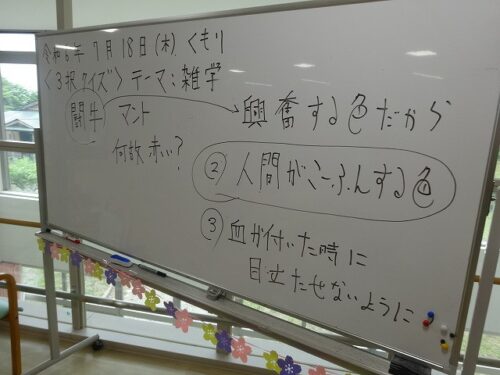 令和6年7月18日(木)くもり
<3択クイズ>テーマ:雑学
闘牛 マント
何故赤い?
興奮する色だから
② 人間がこーふんする色
③ 血が付いた時に
目立たせないように